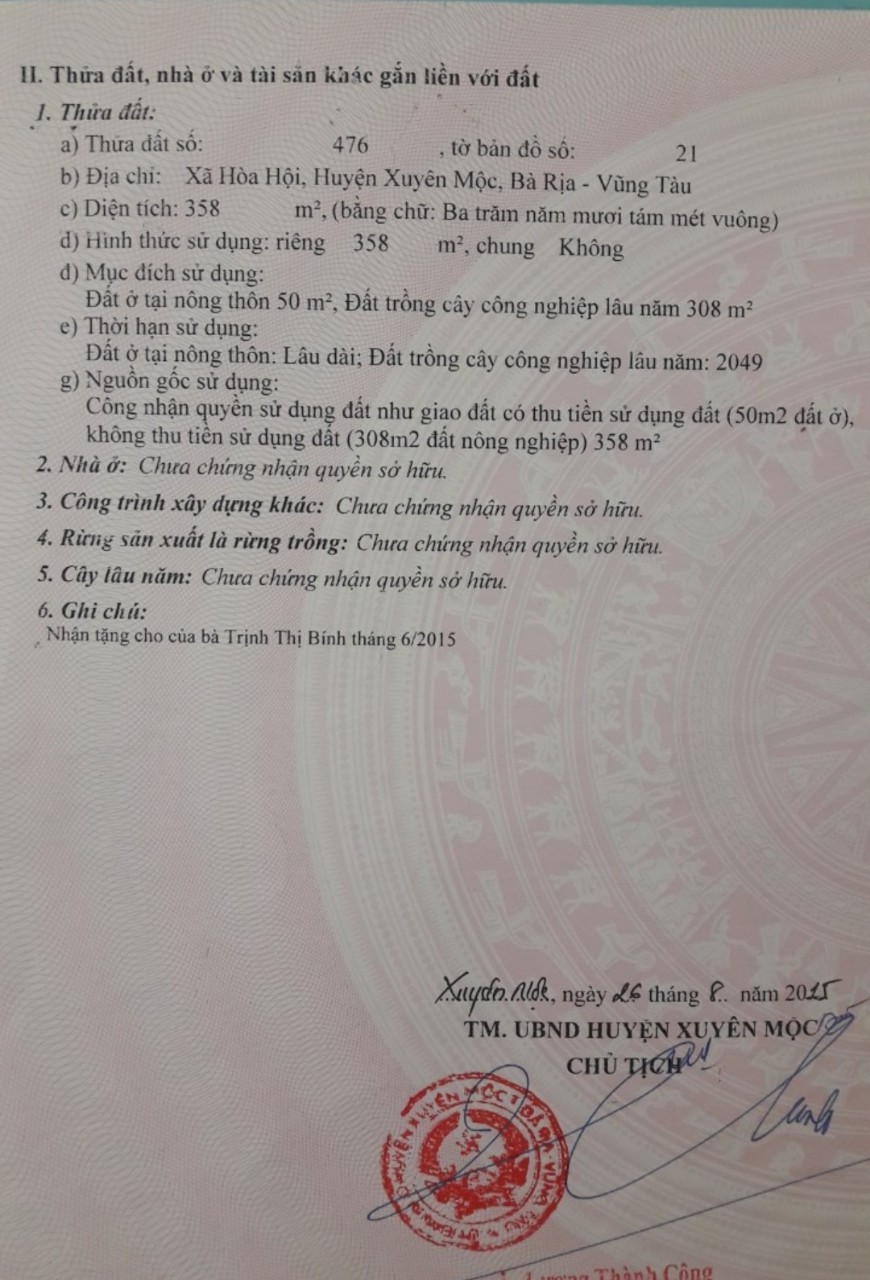 II. Thửa đất, nhà ở và tài sản khác gắn liền với đất
1. Thửa đất:
a) Thửa đất số: 476 , tờ bản đồ số: 21
b) Địa chỉ: Xã Hòa Hội, Huyện Xuyên Mộc, Bà Rịa - Vũng Tàu
c) Diện tích: 358 m², (bằng chữ: Ba trăm năm mươi tám mét vuông)
d) Hình thức sử dụng: riêng 358 m², chung Không
đ) Mục đích sử dụng:
Đất ở tại nông thôn 50 m², Đất trồng cây công nghiệp lâu năm 308 m²
e) Thời hạn sử dụng:
Đất ở tại nông thôn: Lâu dài; Đất trồng cây công nghiệp lâu năm: 2049
g) Nguồn gốc sử dụng:
Công nhận quyền sử dụng đất như giao đất có thu tiền sử dụng đất (50m2 đất ở),
không thu tiền sử dụng đất (308m2 đất nông nghiệp) 358 m²
2. Nhà ở: Chưa chứng nhận quyền sở hữu.
3. Công trình xây dựng khác: Chưa chứng nhận quyền sở hữu.
4. Rừng sản xuất là rừng trồng: Chưa chứng nhận quyền sở hữu.
5. Cây lâu năm: Chưa chứng nhận quyền sở hữu.
6. Ghi chú:
Nhận tặng cho của bà Trịnh Thị Bính tháng 6/2015
Xuyên Mộc, ngày 26 tháng 8.. năm 2015
TM. UBND HUYỆN XUYÊN MỘC
CHỦ TỊCH
HUYỆN XUYÊN MỘC T. BÀ RỊA - VŨNG TÀU
Lương Thành Công